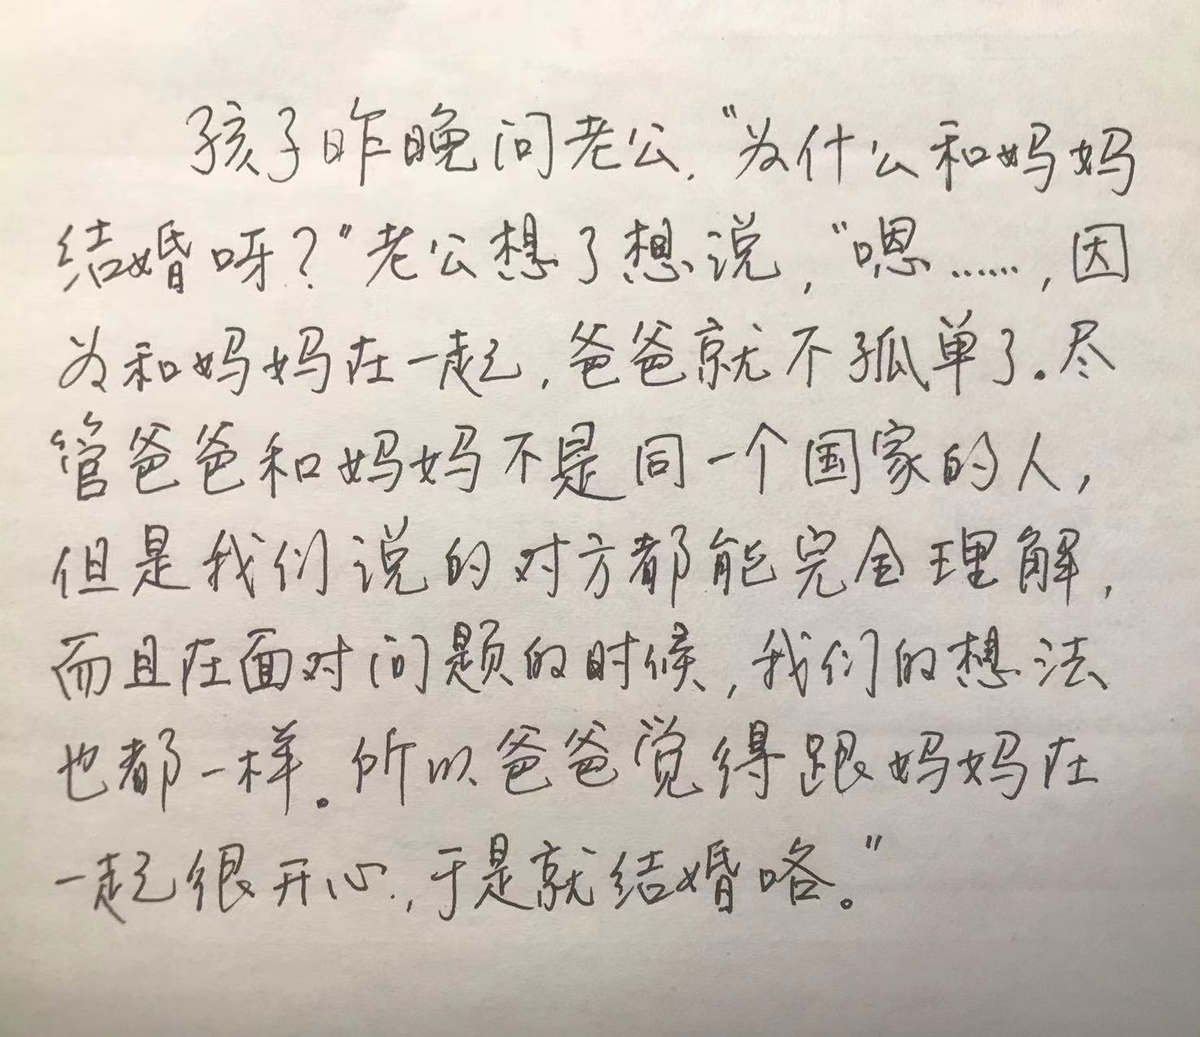 孩子昨晚问老公，“为什么和妈妈
结婚呀？”老公想了想说，“嗯……，因
为和妈妈在一起，爸爸就不孤单了。尽
管爸爸和妈妈不是同一个国家的人，
但是我们说的对方都能完全理解，
而且在面对问题的时候，我们的想法
也都一样。所以爸爸觉得跟妈妈在
一起很开心，于是就结婚咯。”